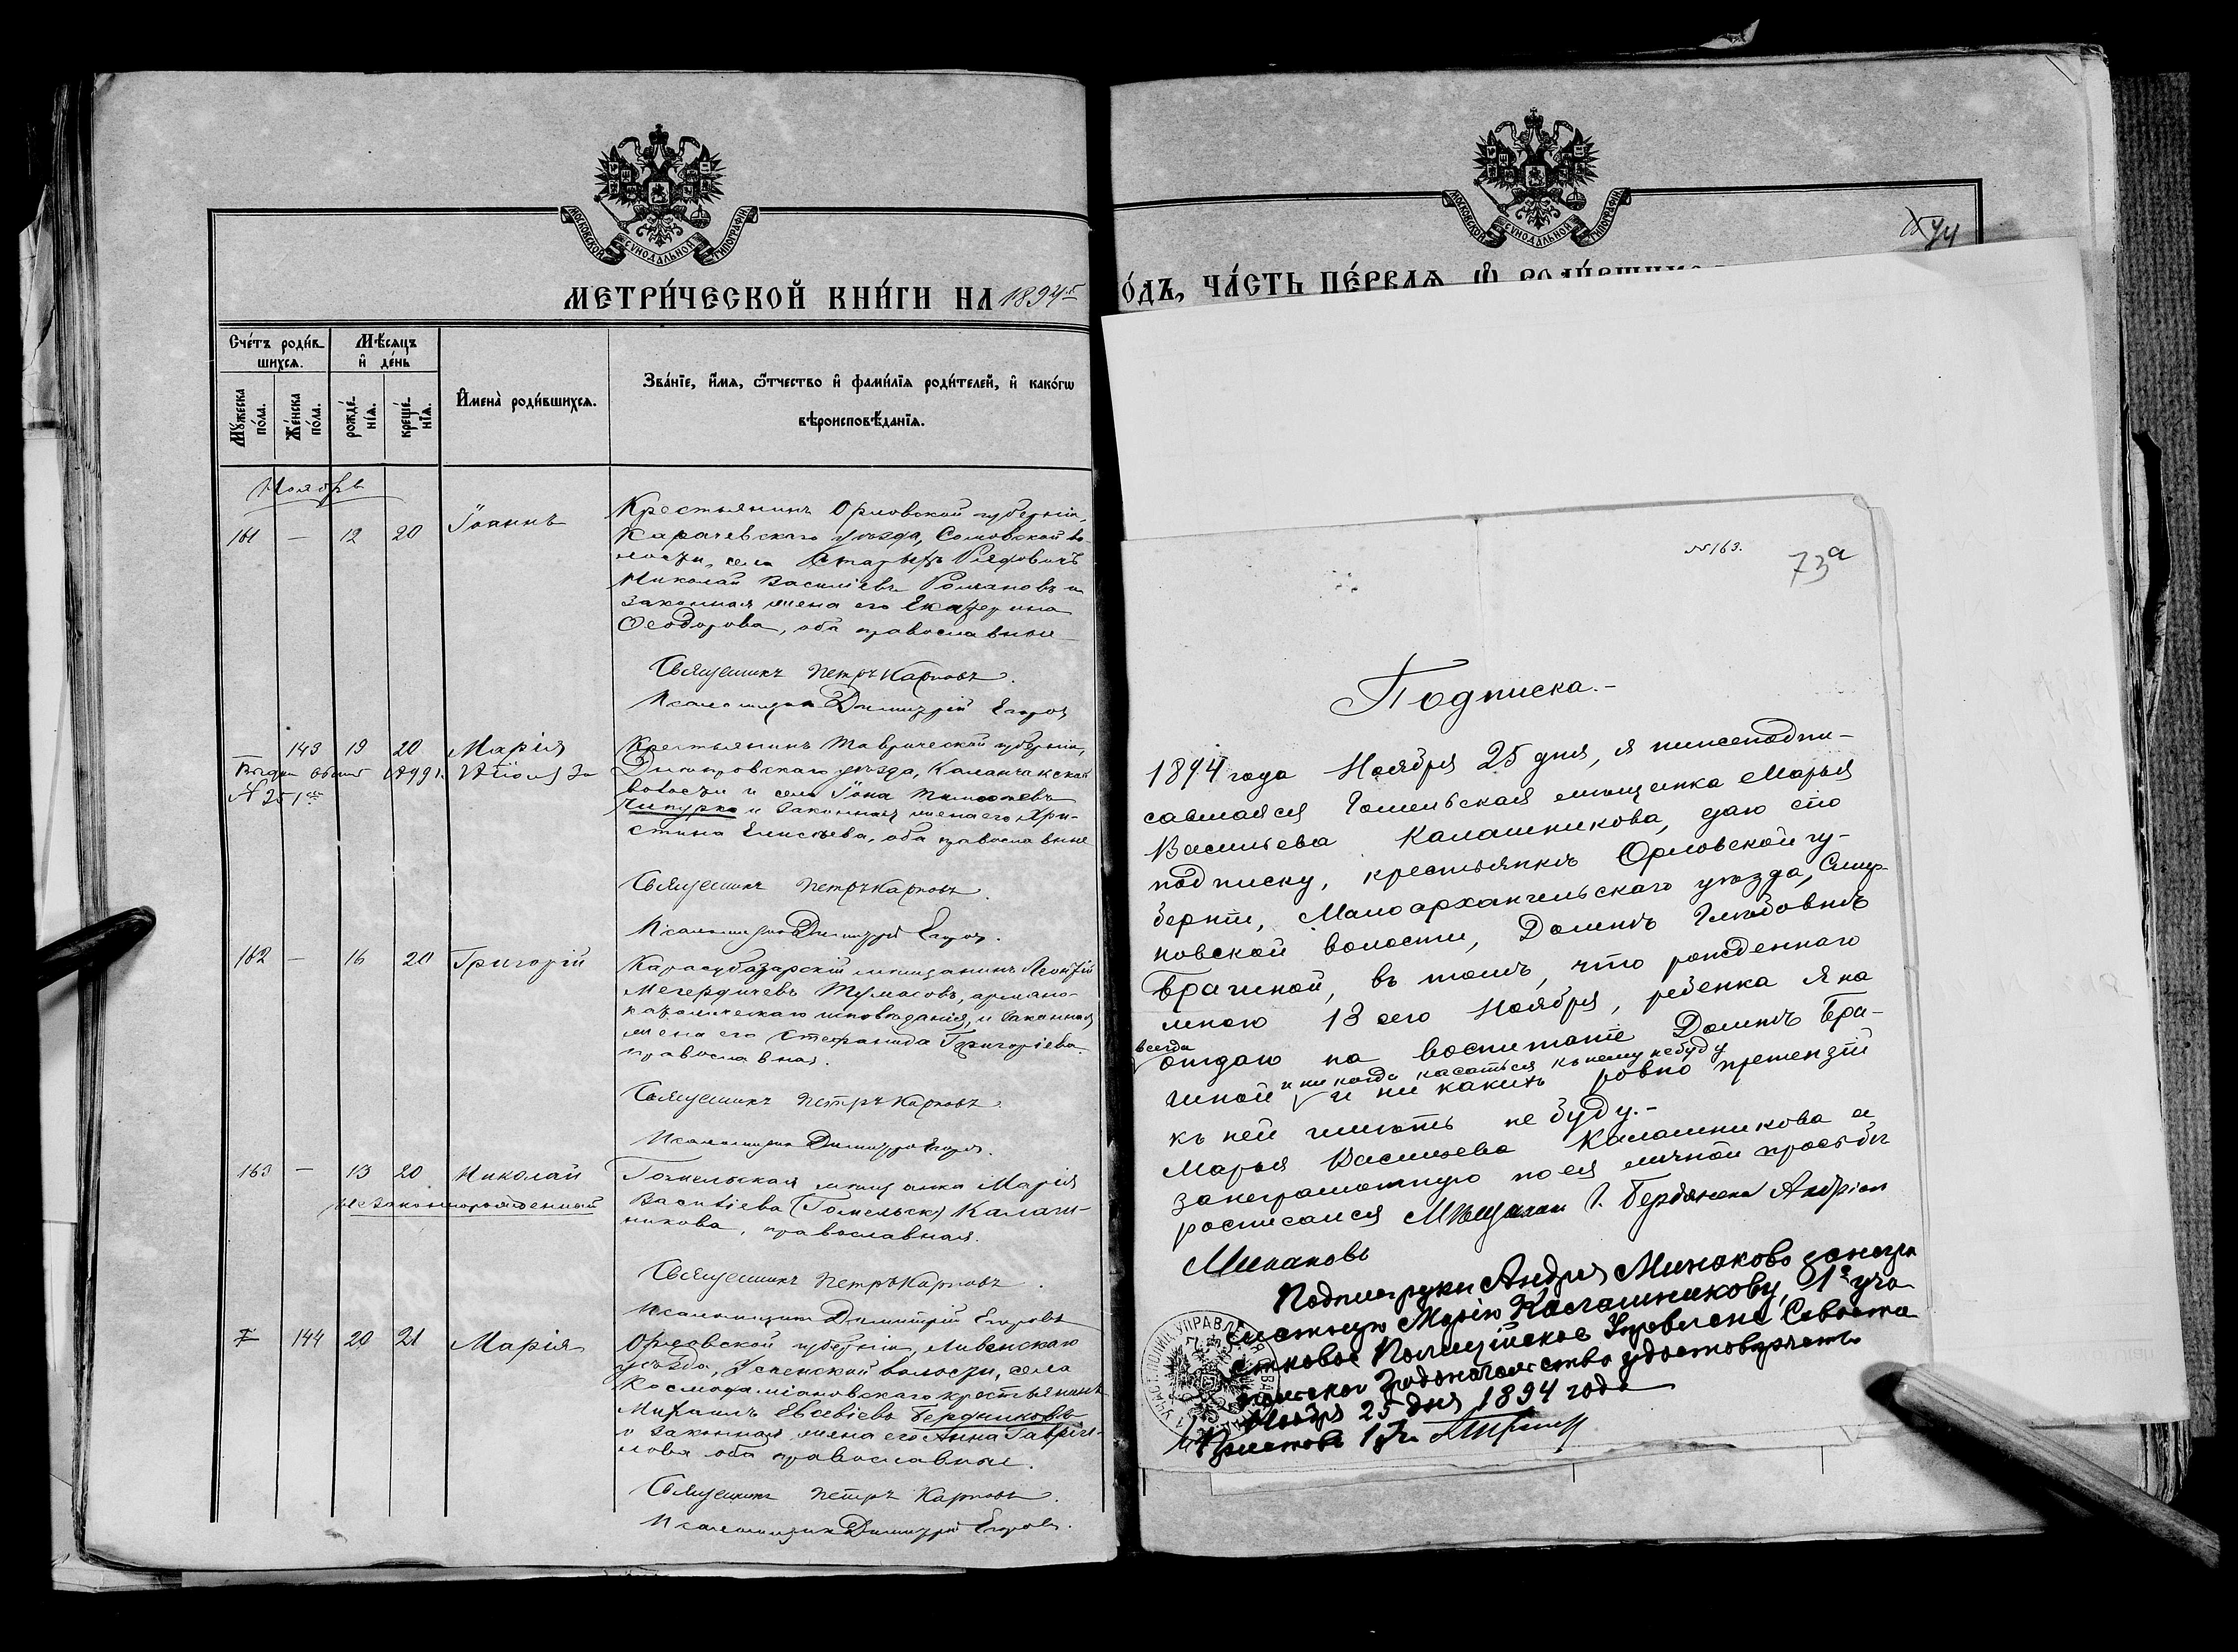 МОСКОВСКОЙ СѴНОДАЛЬНОЙ ТИПОГРАФІИ
МЕТРИ́ЧЕСКОЙ КНИ́ГИ НА 1894й
Счетъ роди́вшихся.
Мѣсяцъ и҆ де́нь
Му́жеска по́ла.
Же́нска по́ла.
рожде́нїѧ.
креще́нїѧ.
И҆мена̀ роди́вшихсѧ.
Зва́нїе, и҆́мѧ, ѻ҆́тчество и҆ фами́лїѧ роди́телей, и҆ како́гѡ
вѣроисповѣ́данїѧ.
Ноябрь
161 — 12 20 Іоаннъ
Крестьянинъ Орловской губерніи,
Карачевскаго уѣзда, Сомовской во
лости, села
Николай Василіевъ Романовъ и
законная жена его Екатерина
Ѳеодорова, оба православные
Священникъ Петръ Карповъ.
Псаломщикъ Димитрій Егоровъ
143 19 20 Марія
Выдан 1899 г. Іюля
№ 251
Крестьянинъ Таврической губерніи,
Днепровскаго уѣзда, Каланчакской
волости и села Іона Тимоѳеевъ
Чипурко и законная жена его Хри-
стина Елисѣева, оба православные
Священникъ Петръ Карповъ.
Псаломщикъ Димитрій Егоровъ.
162 — 16 20 Григорій
Карасубазарскій мещанинъ Леонтій
Мегердичевъ Тумасовъ, армяно-
католическаго исповѣданія, и законная
жена его Стефанида Григоріева
православная.
Священникъ Петръ Карповъ.
Псаломщикъ Димитрій Егоровъ.
163 — 13 20 Николай
незаконнорожденный
Гомельская мещанка Марія
Василіева (Гомельск) Калаш-
никова, православная.
Священникъ Петръ Карповъ.
Псаломщикъ Димитрій Егоровъ
144 20 21 Марія
Орловской губерніи, Ливенскаго
уѣзда, Успенской волости, села
Космодаміановскаго крестьянинъ
Михаилъ Евсевіевъ Бердниковъ
и законная жена его Анна Гавріи-
лова оба православные.
Священникъ Петръ Карповъ.
Псаломщикъ Димитрій Егоровъ.
МОСКОВСКОЙ СѴНОДАЛЬНОЙ ТИПОГРАФІИ
74
О́ДЪ, ЧА́СТЬ ПЕ́РВАѦ, Ѡ҆
№ 163.
73а
Подписка.-
1894 года Ноября 25 дня, я нижеподпи-
савшаяся Гомельская мещанка Марья
Васильева Калашникова, даю сію
подписку, крестьянкѣ Орловской гу-
берніи, Малоархангельскаго уѣзда,
новской волости, Домнѣ Глѣбовнѣ
Брагиной, въ томъ, что рожденнаго
мною 13 сего Ноября, ребенка я на
всегда
отдаю на воспитаніе Домнѣ Бра-
гиной и ни когда касаться къ нему не буду
и ни какихъ ровно претензій
къ ней имѣть не буду.-
Марья Васильева Калашникова а
за неграмотную по ея личной просьбѣ
росписался Мѣщанин г. Бердянска Андріан
Минаковъ
Подпись руки Андрея Минакова за негра
мотную Марію Калашникову, 1го уча
стковое Полицейское Управлене Севасто
польскаго Градоначальства удостовѣряетъ
Ноября 25 дня 1894 года
Приставъ 1 уч.